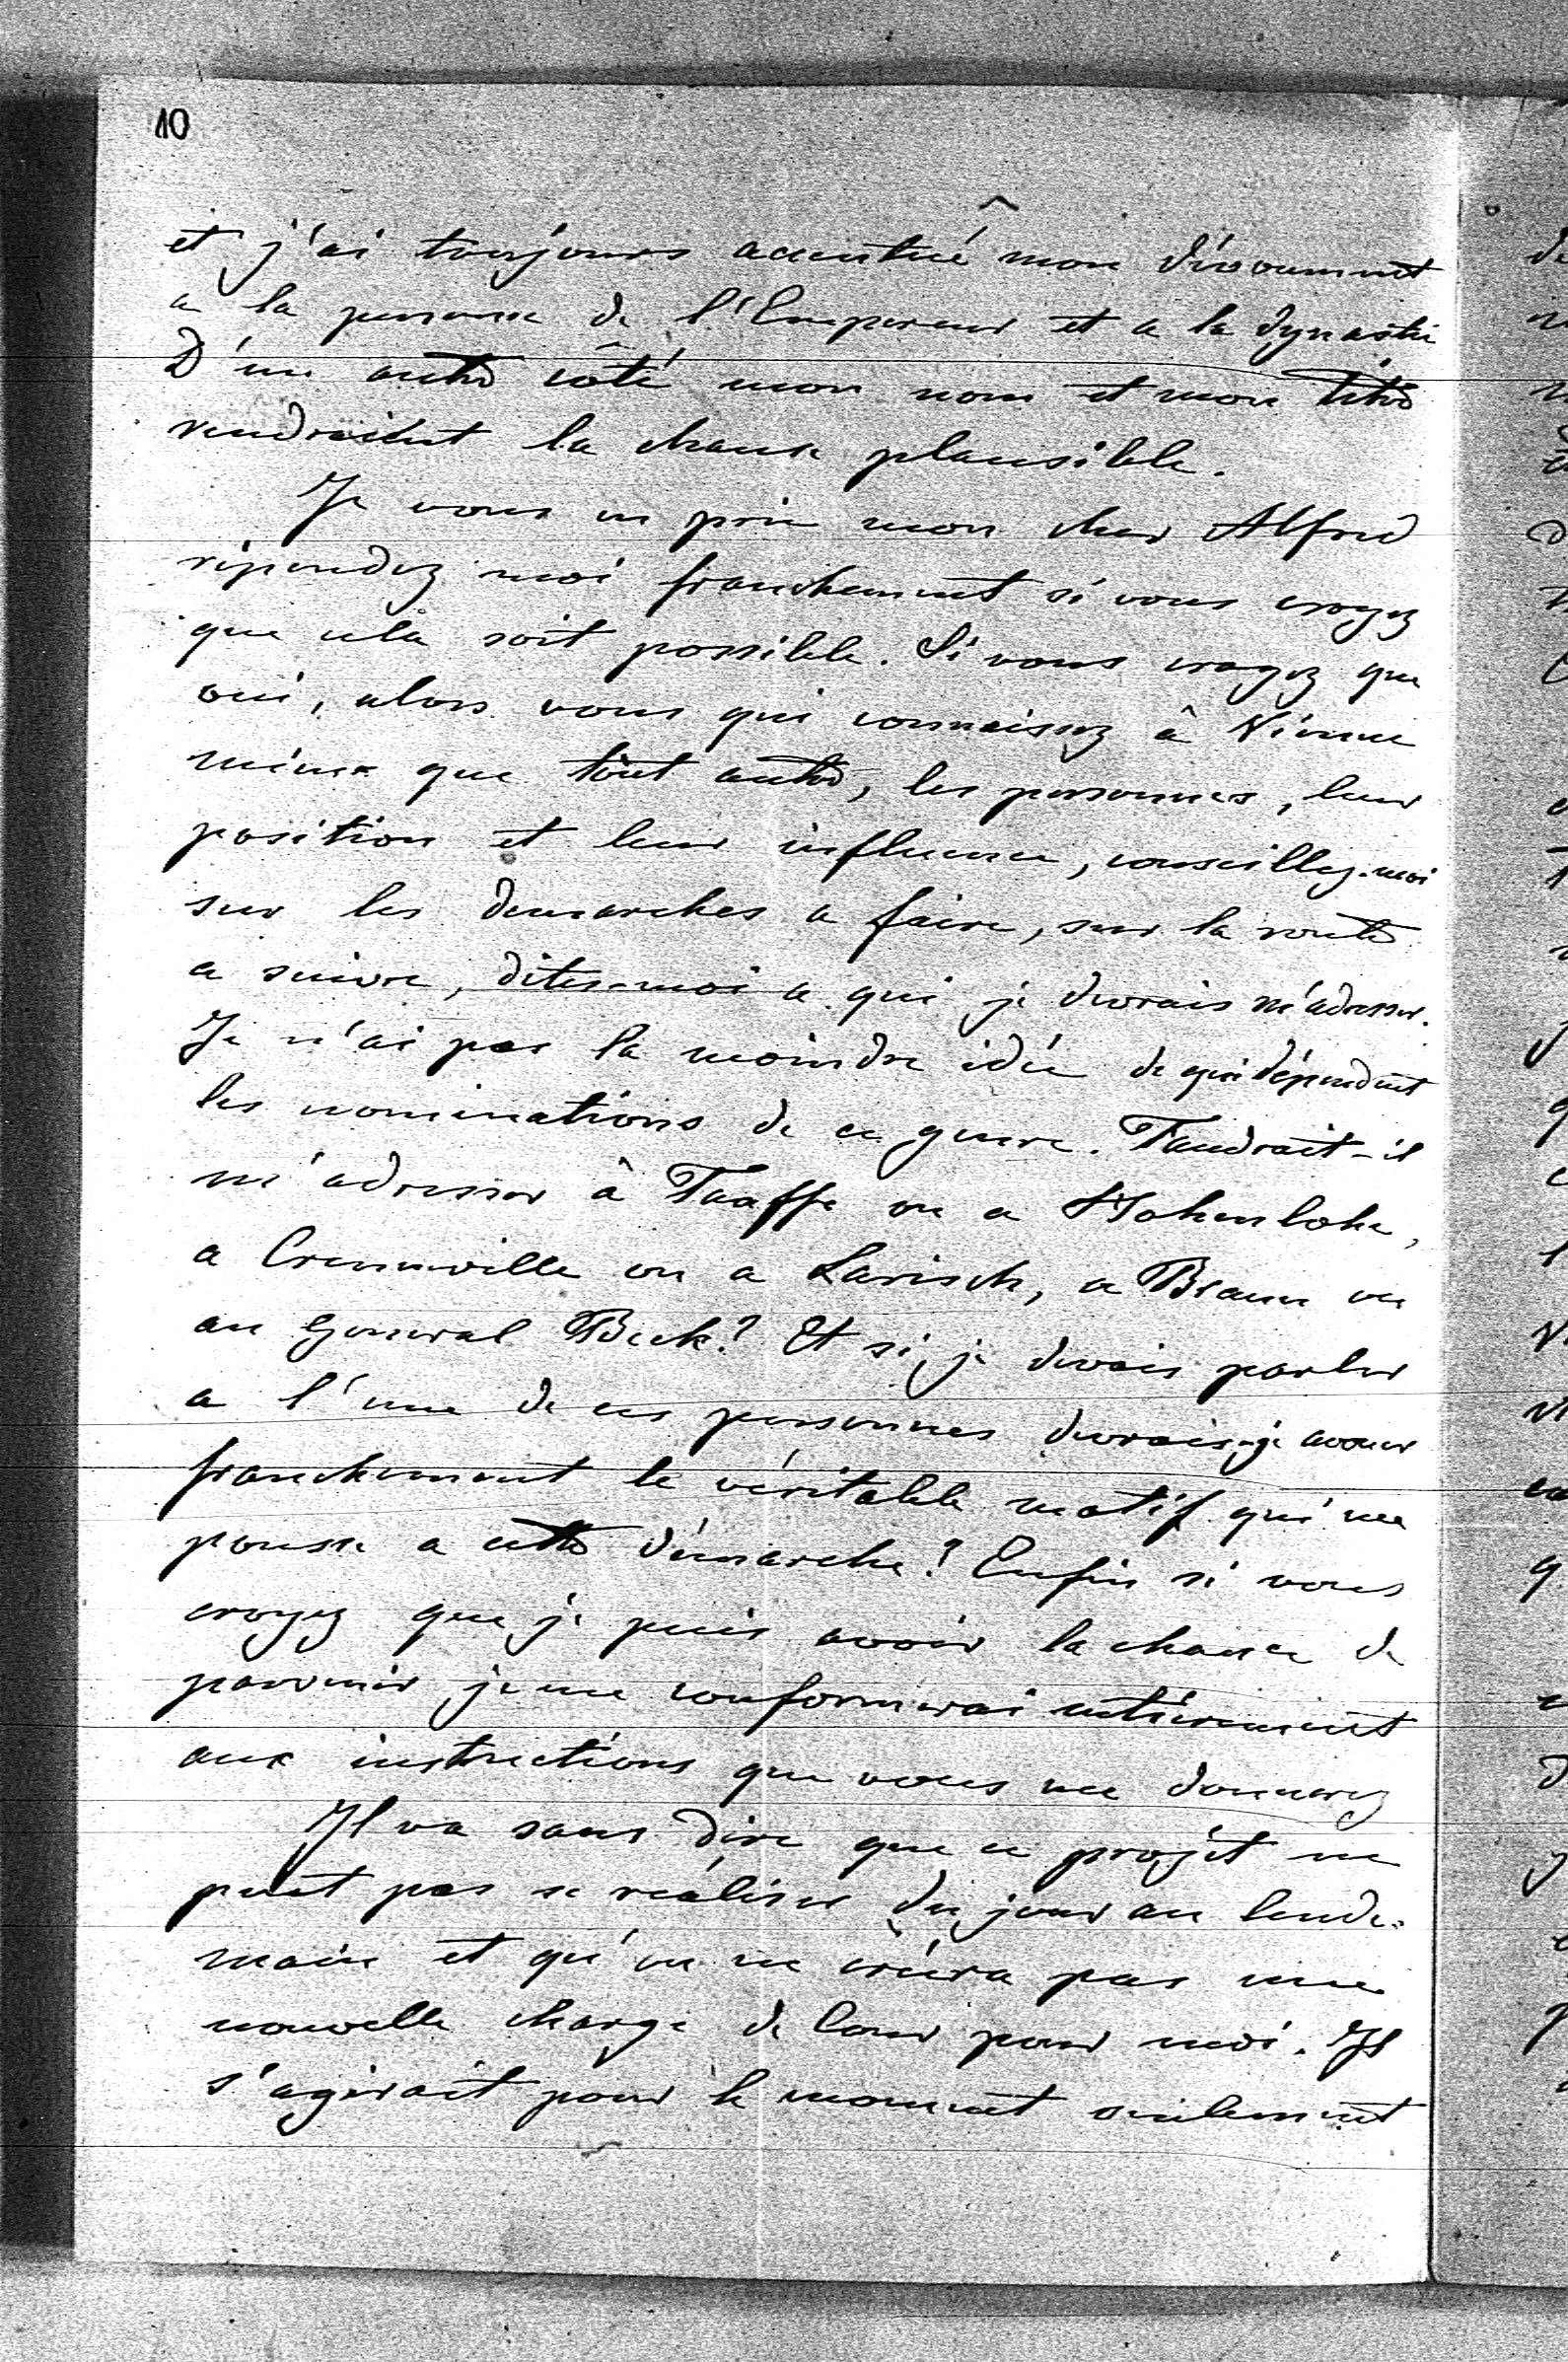 10
et j'ai toujours accentué mon dévouement
a la personne de l'Empereur et a la dynastie
D'un autre côté mon nom et mon titre
rendraient la chause plausible.
Je vous en prie mon cher Alfred
répondez moi franchement si vous croyez
que cela soit possible. Si vous croyez que
oui, alors vous qui connaissez â Vienne
mieux que tout autre, les personnes, leur
position et leur influence, conseillez-moi
sur les demarches a faire, sur la route
a suivre, dites-moi a qui je devrais m'adresser.
Je n'ai pas la moindre idée de qui dépendent
les nominations de ce genre. Faudrait-il
m'adresser â Taaffe ou a Hohenlohe,
a Crenneville ou a Larisch, a Braun ou
au General Beck? Et si je devais parler
a l'une de ces personnes devrais-je avouer
franchement le véritable motif qui me
pousse a cette démarche? Enfin si vous
croyez que je puis avoir la chance de
parvenir je me conformerai entièrement
aux instructions que vous me donnerez
Il va sans dire que ce projet ne
peut pas se réaliser du jour au lende-
main et qu'on ne créera pas une
nouvelle charge de Cour pour moi. Il
s'agirait pour le moment seulement